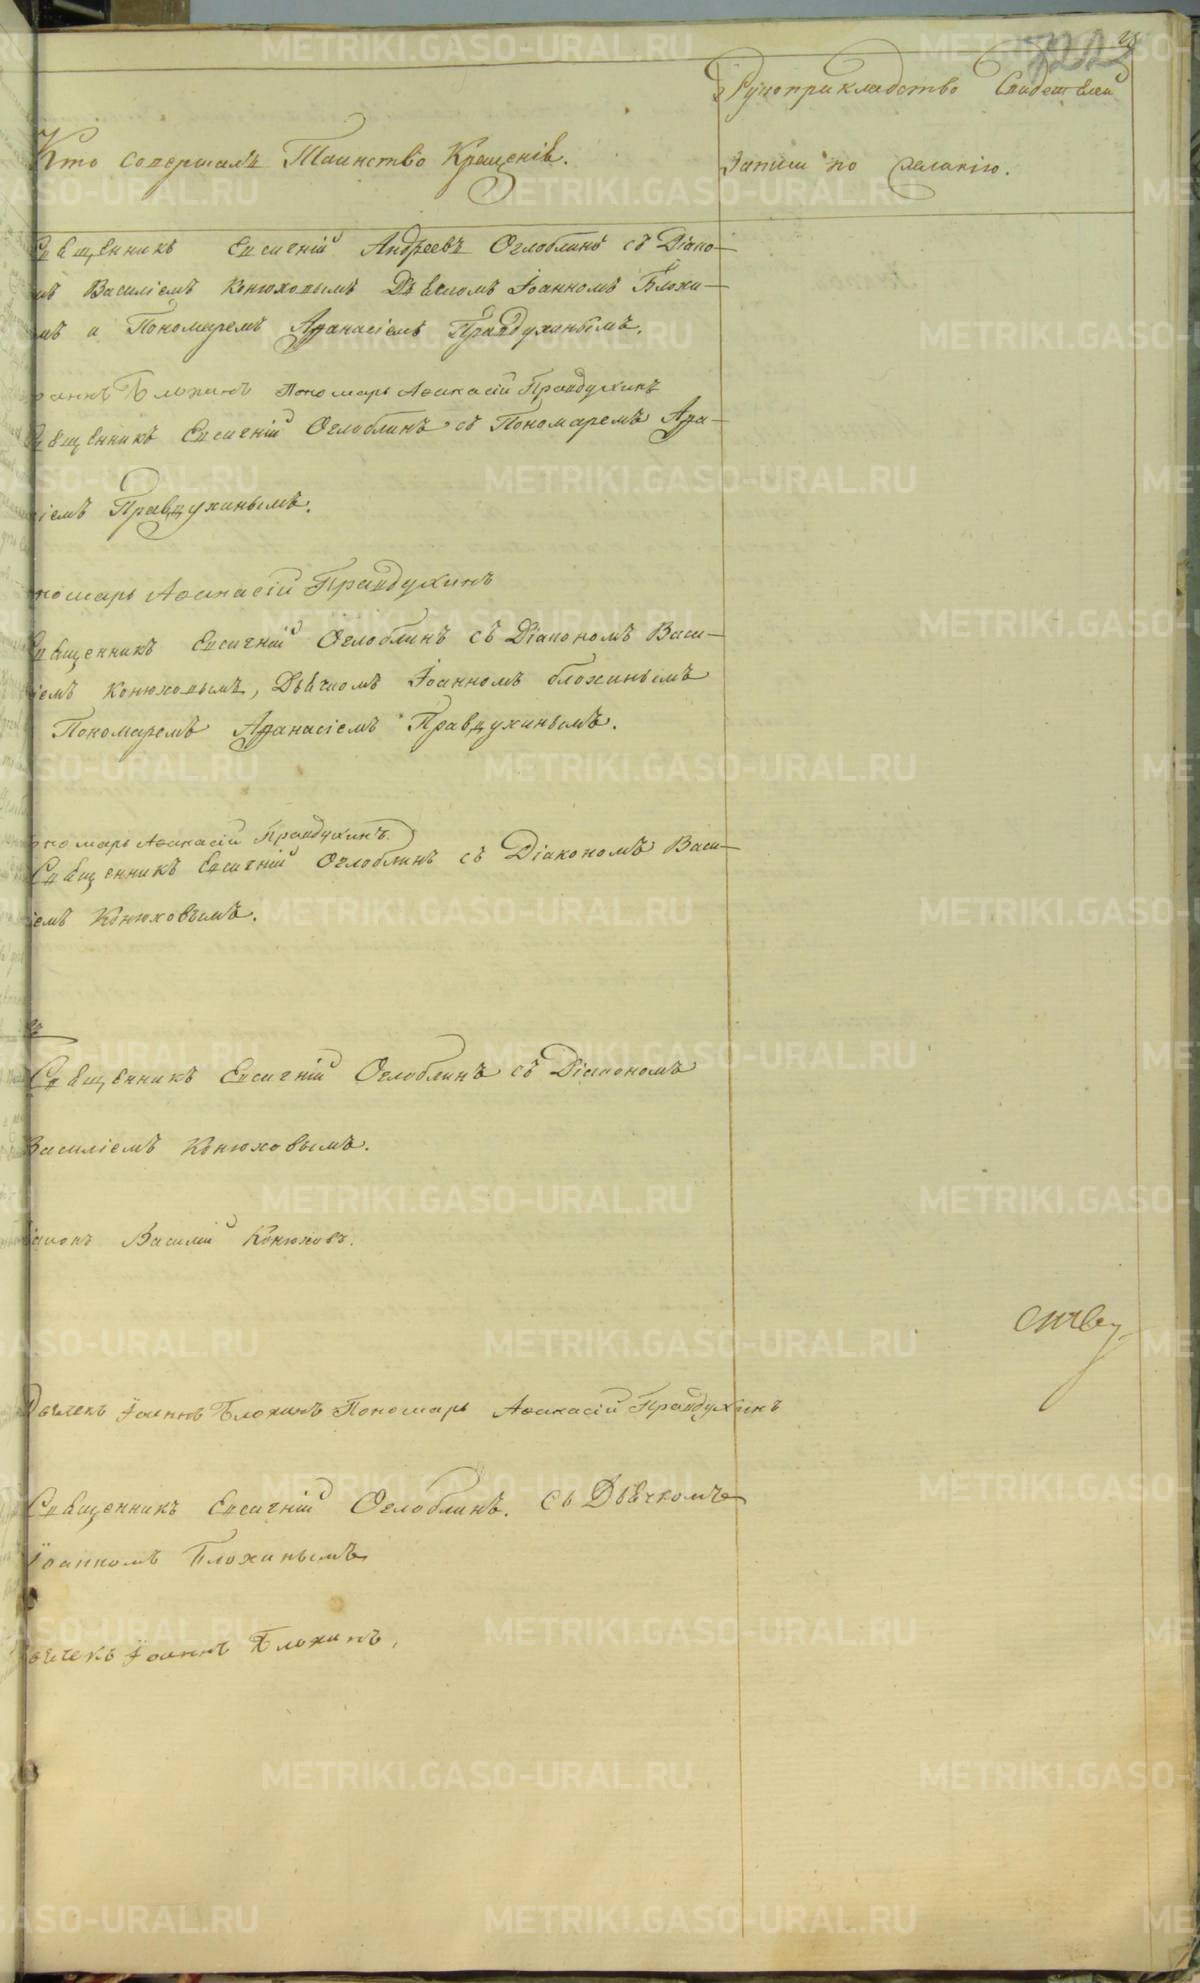 722
Рукоприкладство Свидетелей
Кто совершалъ Таинство Крещенія.
записи по желанію.
Священникъ Евсигній Андреевъ Оглоблинъ съ Діако-
мъ Василіемъ Конюховымъ Дьячкомъ Іоанномъ Блохи-
мъ и Пономаремъ Афанасіемъ Правдухинымъ.
оаннъ Блохинъ Пономарь Аѳанасій Правдухинъ
Священникъ Евсигній Оглоблинъ съ Пономаремъ Афа-
сіемъ Правдухинымъ.
ономарь Аѳанасій Правдухинъ
Священникъ Евсигній Оглоблинъ съ Діакономъ Васи-
іемъ Конюховымъ, Дьячкомъ Іоанномъ Блохинымъ
Пономаремъ Афанасіемъ Правдухинымъ.
ономарь Аѳанасій Правдухинъ.
Священникъ Евсигній Оглоблинъ съ Діакономъ Васи-
іемъ Конюховымъ.
Священникъ Евсигній Оглоблинъ съ Діакономъ
Василіемъ Конюховымъ.
іаконъ Василій Конюховъ.
Дьячекъ Іоаннъ Блохинъ Пономарь Аѳанасій Правдухинъ
Священникъ Евсигній Оглоблинъ. съ Дьячкомъ
Іоанномъ Блохинымъ
ьячекъ Іоаннъ Блохинъ,
METRIKI.GASO-URAL.RU